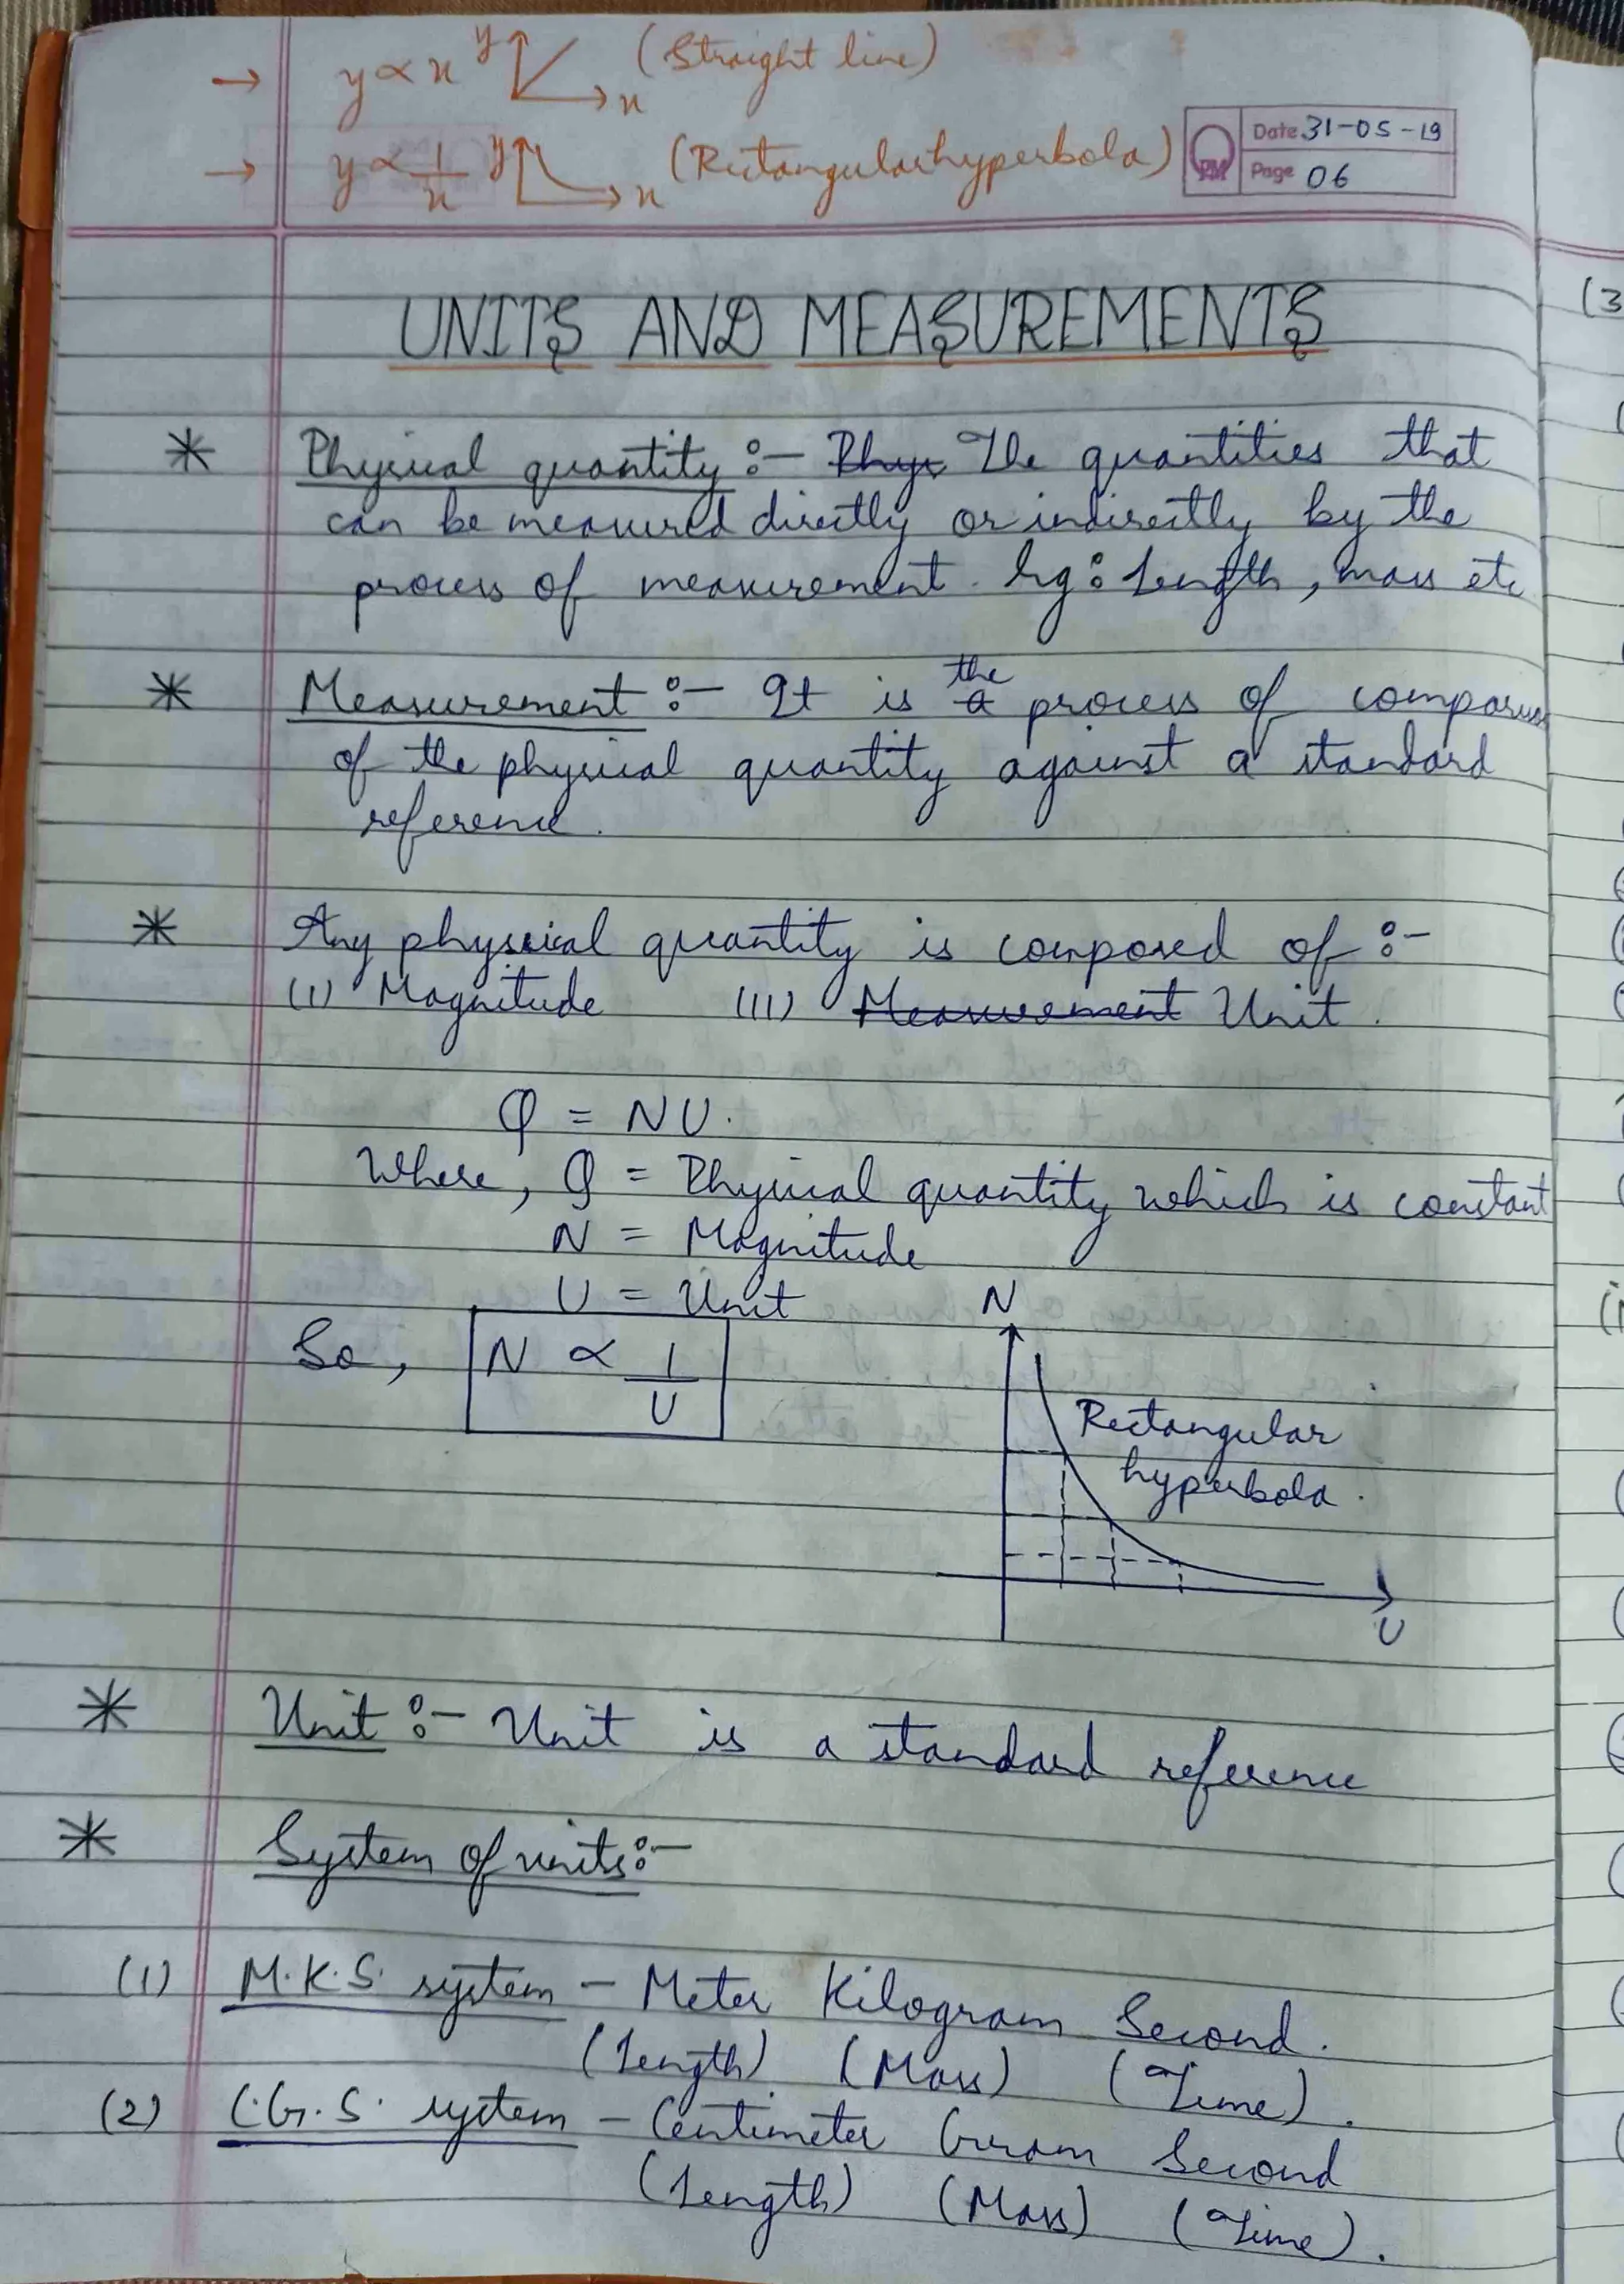 → y ∝ x y x (Straight line)
→ y ∝ 1/x y x (Rectangularhyperbola)
Date 31-05-19
Page 06
UNITS AND MEASUREMENTS
* Physical quantity :- Phys The quantities that
can be measured directly or indirectly by the
process of measurement. Eg: Length, mass etc
the
* Measurement :- It is a process of
of the physical quantity against a standard
reference.
* Any physical quantity is composed of :-
(I) Magnitude (II) Measurement Unit.
Q = NU.
Where, Q = Physical quantity which is constant
N = Magnitude
U = Unit
So, N ∝ 1/U
N
Rectangular
hyperbola.
U
* Unit :- Unit is a standard reference
* System of units:-
(1) M.K.S. system - Meter Kilogram Second.
(Length) (Mass) (Time).
(2) C.G.S. system - Centimeter Gram Second
(Length) (Mass) (Time).
(3